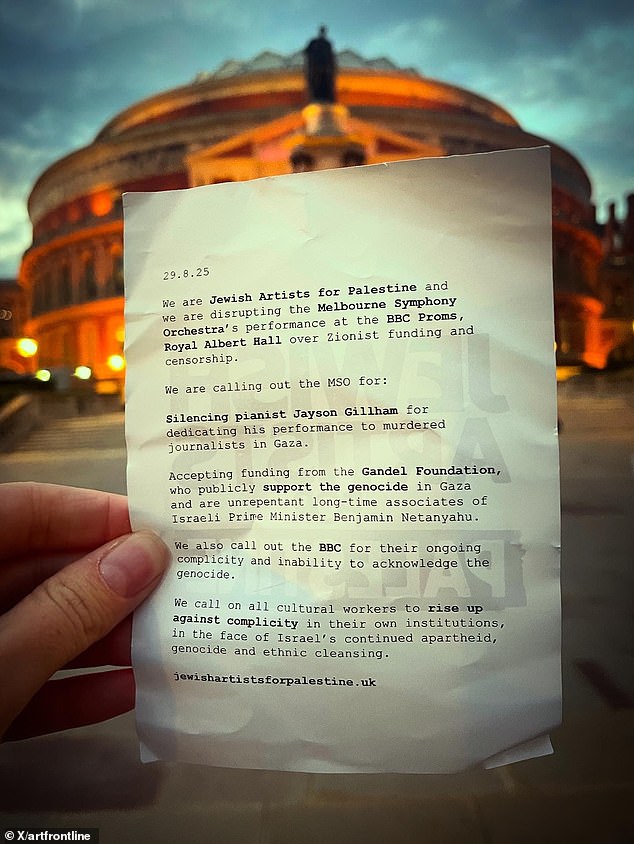 29.8.25
We are Jewish Artists for Palestine and
we are disrupting the Melbourne Symphony
Orchestra's performance at the BBC Proms,
Royal Albert Hall over Zionist funding and
censorship.
We are calling out the MSO for:
Silencing pianist Jayson Gillham for
dedicating his performance to murdered
journalists in Gaza.
Accepting funding from the Gandel Foundation,
who publicly support the genocide in Gaza
and are unrepentant long-time associates of
Israeli Prime Minister Benjamin Netanyahu.
We also call out the BBC for their ongoing
complicity and inability to acknowledge the
genocide.
We call on all cultural workers to rise up
against complicity in their own institutions,
in the face of Israel's continued apartheid,
genocide and ethnic cleansing.
jewishartistsforpalestine.uk
© X/artfrontline